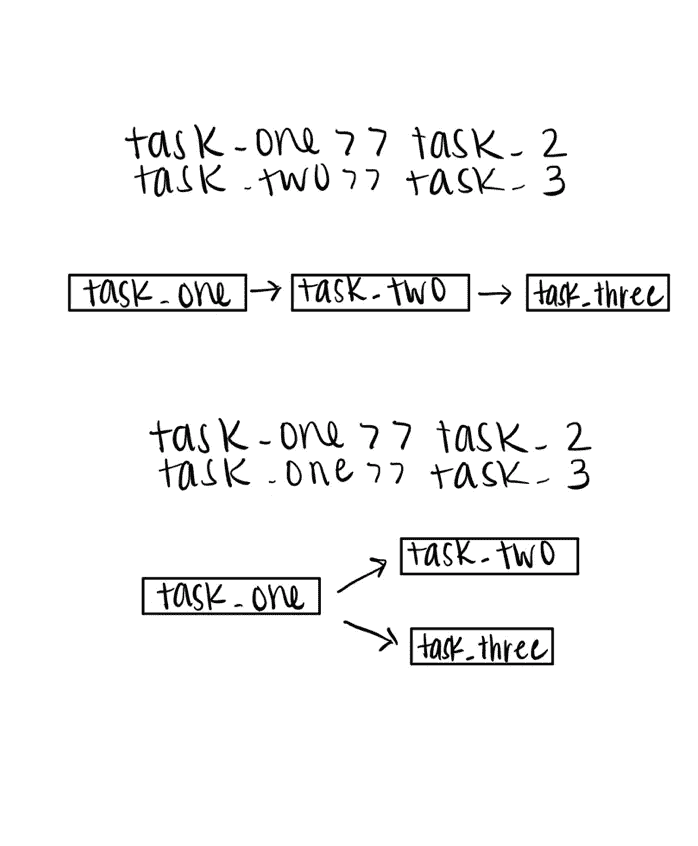 task_one >> task_2
task_two >> task_3
task_one → task_two → task_three
task_one >> task_2
task_one >> task_3
task_two
task_one
task_three